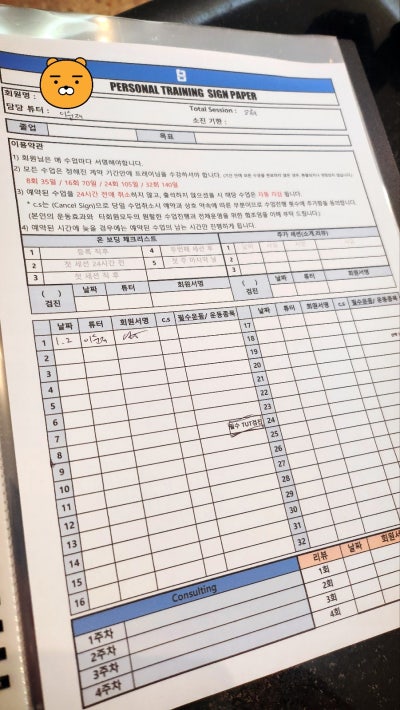 PERSONAL TRAINING SIGN PAPER
회원명 :
담당 튜터 : Total Session :
소진 기한 :
졸업 목표
이용약관
1) 회원님은 매 수업마다 서명해야합니다.
2) 모든 수업은 정해진 계약 기간안에 트레이닝을 수강하셔야 합니다.
8회 35일 / 16회 70일 / 24회 105일 / 32회 140일
3) 예약된 수업을 24시간 전에 취소하지 않고, 출석하지 않으셨을 시 해당 수업은 자동 차감 됩니다.
* c.s는 (Cancel Sign)으로 당일 수업취소시 예약과 상호 약속에 따른 부분이므로 수업진행 횟수에 추가됨을 동의합니다.
(본인의 운동효과와 타회원모두의 원활한 수업진행과 전체운영을 위한 협조임을 이해 부탁 드립니다.)
4) 예약된 시간에 늦을 경우에는 예약된 수업의 남는 시간만 진행하게 됩니다.
온 보딩 체크리스트 추가 세션(소개,리뷰)
1 등록 직후 4 1
2 첫 세션 24시간 전 5 첫 주 마지막 날 2
3 첫 세션 직후 3
( ) 검진 날짜 튜터 회원서명 ( ) 검진 날짜 튜터 회원서명
날짜 튜터 회원서명 c.s 필수운동/ 운동종목 날짜 튜터 회원서명 c.s 필수운동/ 운동종목
1 1.2 17
2 18
3 19
4 20
5 21
6 22
7 23
8 필수 TUT검진 24
9 25
10 26
11 27
12 28
13 29
14 30
15 31
16 32
Consulting 리뷰 날짜 회원서
1주차 1회
2주차 2회
3주차 3회
4주차 4회